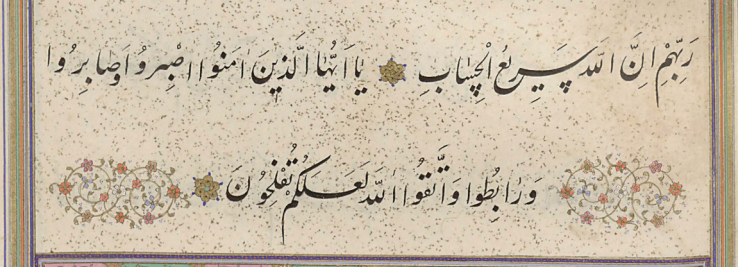 رَبِّهِمْ اِنَّ اللّهَ سَرِيعُ الْحِسٰابِ يٰا اَيُّهَا الَّذِينَ اٰمَنُوا اصْبِرُوا وَصٰابِرُوا
وَرٰابِطُوا وَاتَّقُوا اللّهَ لَعَلَّكُمْ تُفْلِحُونَ